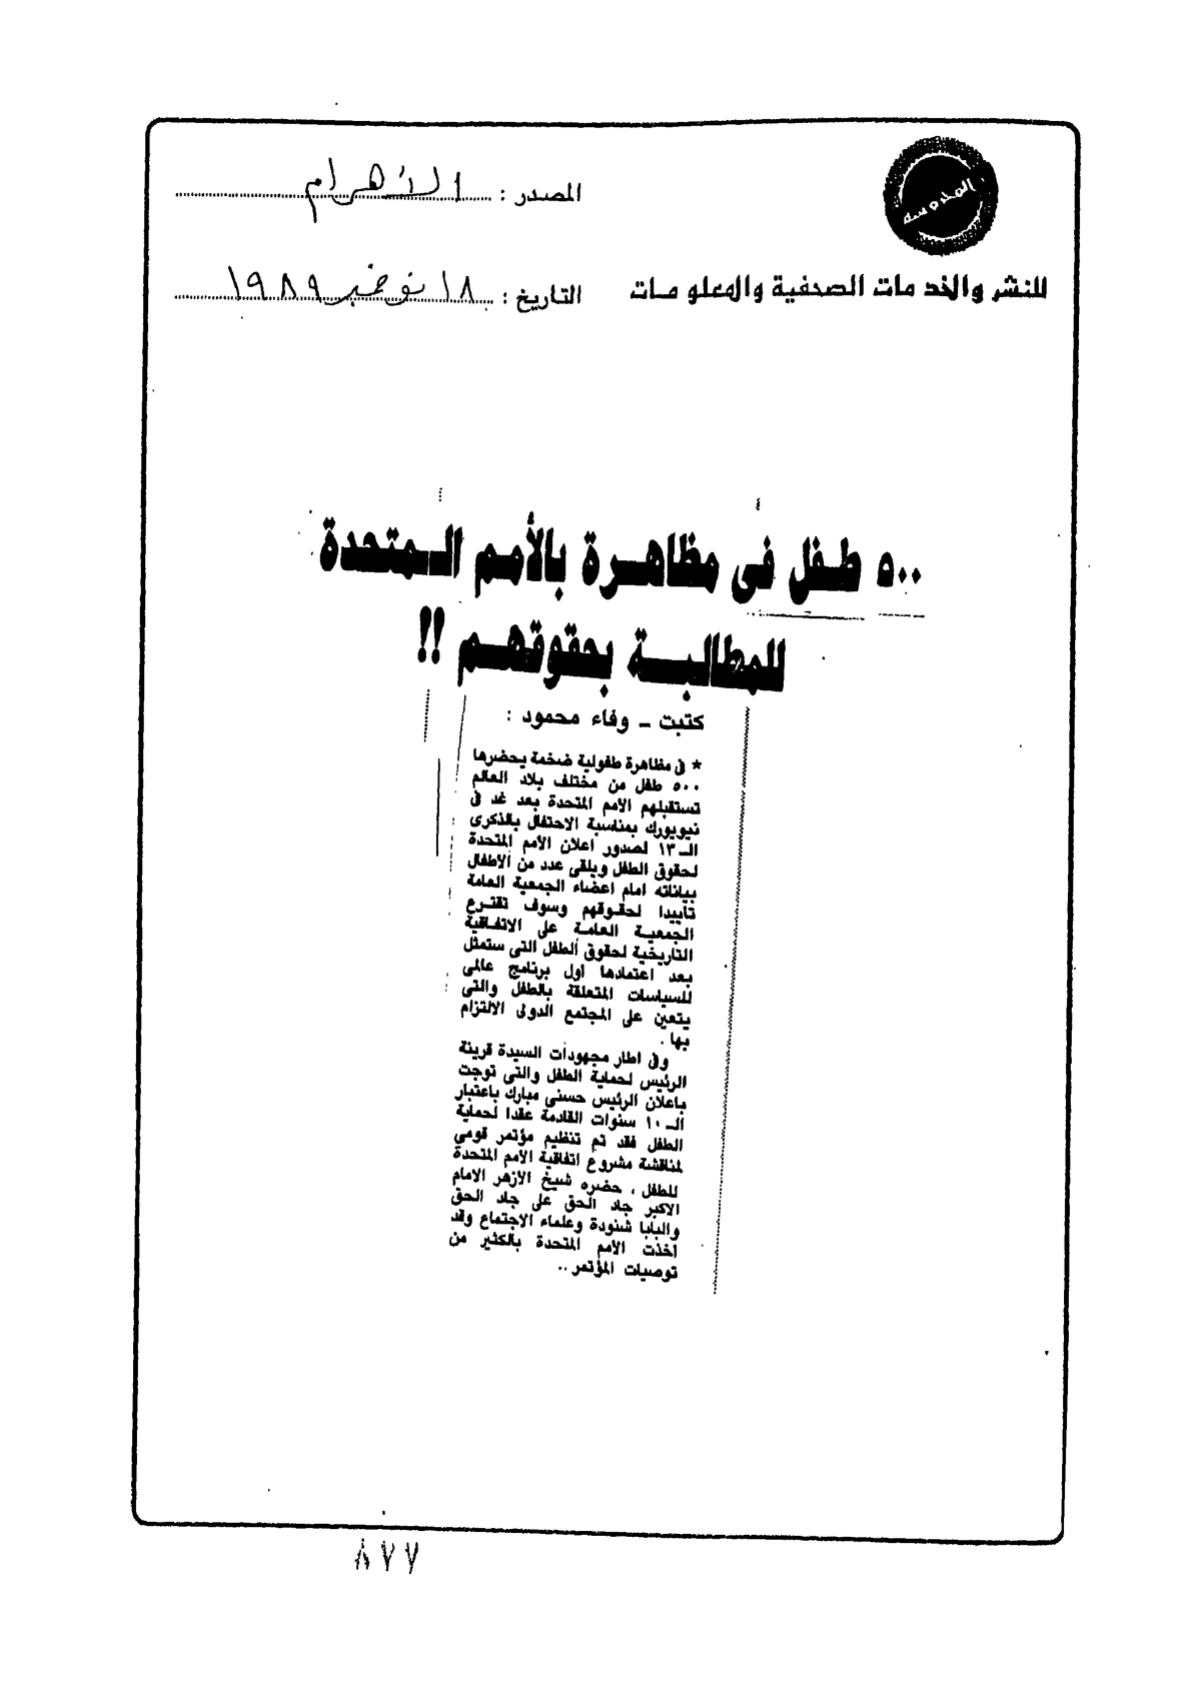 المحروسة
للنشر والخدمات الصحفية والمعلومات
المصدر : الأهرام
التاريخ : ١٨ نوفمبر ١٩٨٩
٥٠٠ طفل فى مظاهرة بالأمم المتحدة
للمطالبة بحقوقهم !!
كتبت ـ وفاء محمود :
* فى مظاهرة طفولية ضخمة يحضرها
٥٠٠ طفل من مختلف بلاد العالم
تستقبلهم الأمم المتحدة بعد غد فى
نيويورك بمناسبة الاحتفال بالذكرى
الـ ١٣ لصدور اعلان الأمم المتحدة
لحقوق الطفل ويلقى عدد من الأطفال
بياناته امام اعضاء الجمعية العامة
تأييدا لحقوقهم وسوف تقترع
الجمعية العامة على الاتفاقية
التاريخية لحقوق الطفل التى ستمثل
بعد اعتمادها اول برنامج عالمى
للسياسات المتعلقة بالطفل والتى
يتعين على المجتمع الدولى الالتزام
بها .
وفى اطار مجهودات السيدة قرينة
الرئيس لحماية الطفل والتى توجت
باعلان الرئيس حسنى مبارك باعتبار
الـ ١٠ سنوات القادمة عقدا لحماية
الطفل فقد تم تنظيم مؤتمر قومى
لمناقشة مشروع اتفاقية الأمم المتحدة
للطفل ، حضره شيخ الازهر الامام
الاكبر جاد الحق على جاد الحق
والبابا شنودة وعلماء الاجتماع وقد
اخذت الأمم المتحدة بالكثير من
توصيات المؤتمر ..
٨٧٧